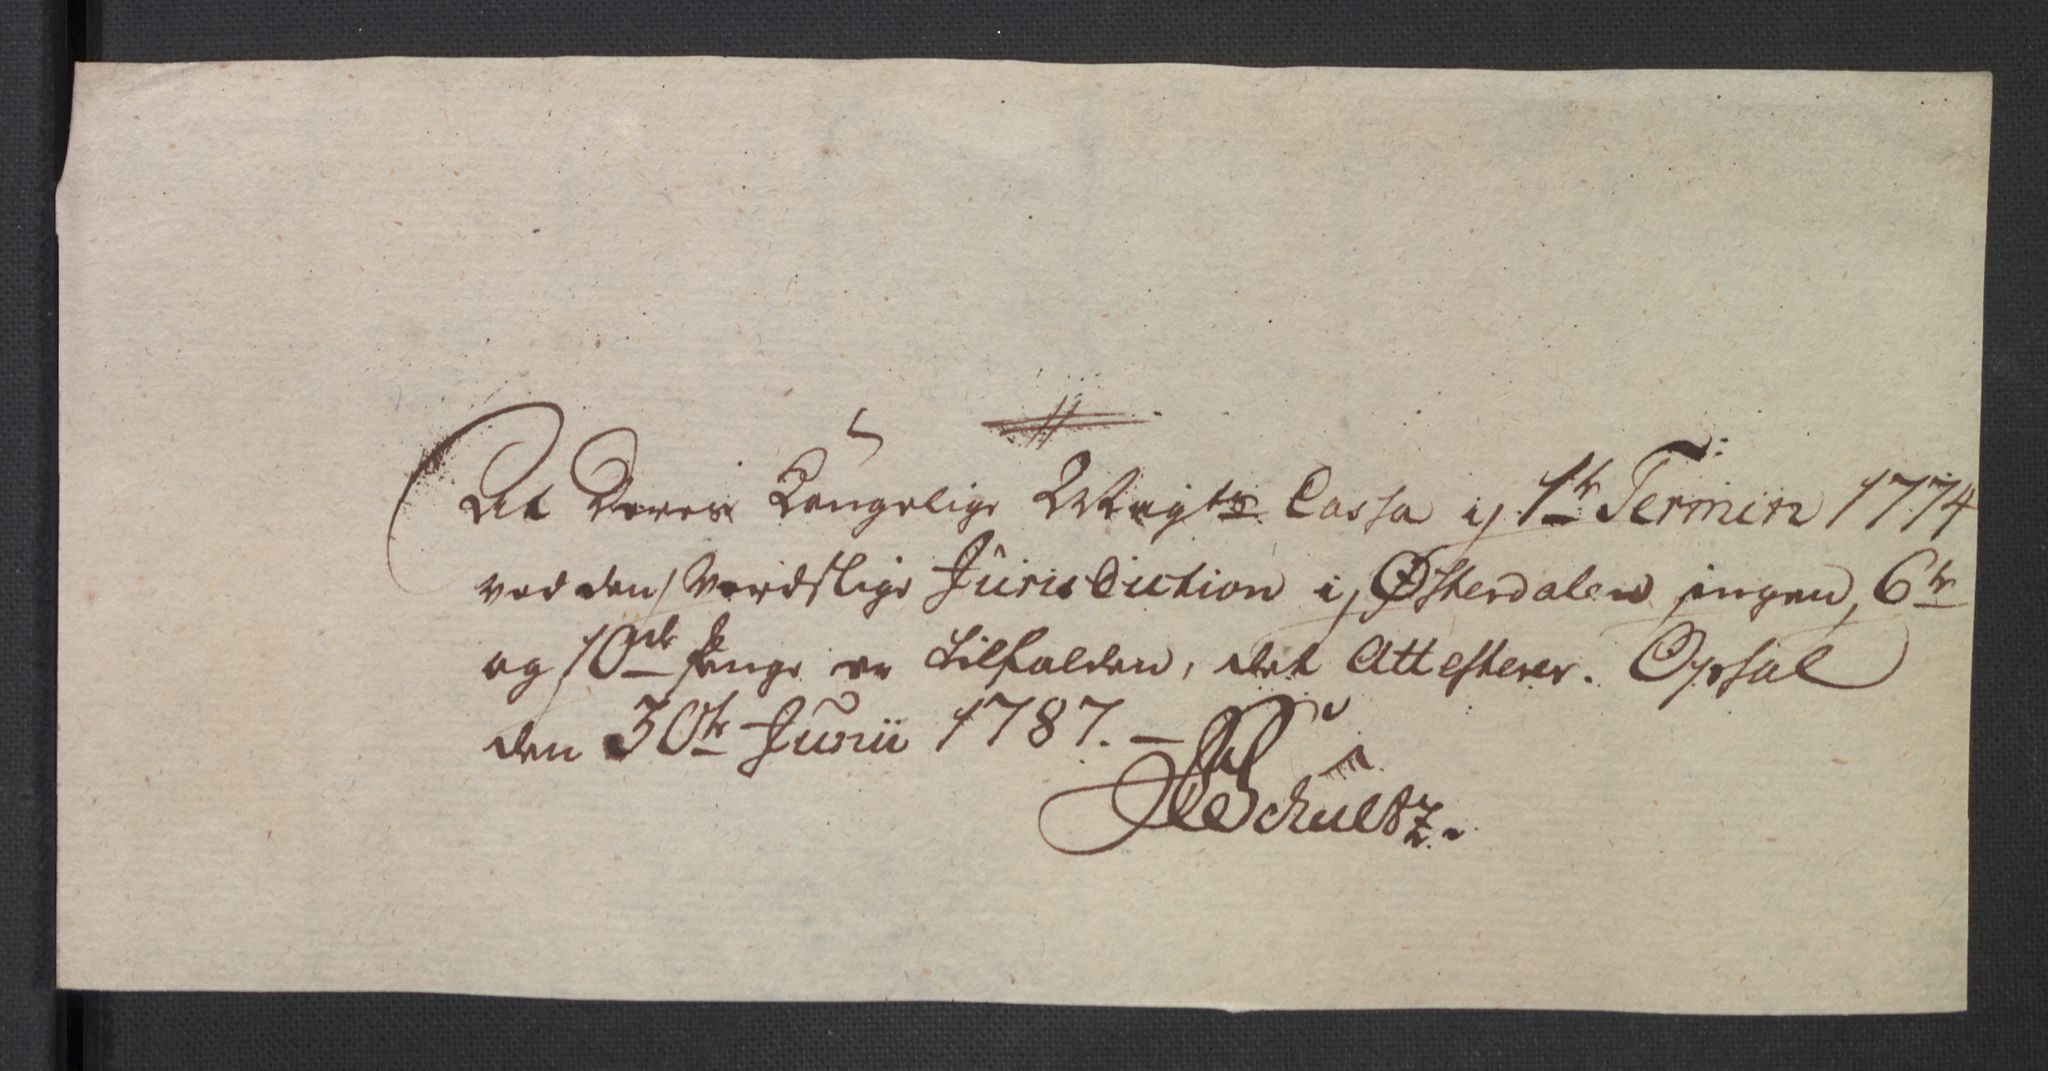 At Deres Kongelige Mayts Cassa i 1te Termin 1774
ved den Verdslige Jurisdiction i Østerdalen ingen 6te
og 10de Penge er tilfalden, det Attesterer. Opsal
den 30te Junii 1787. —
Schultz.